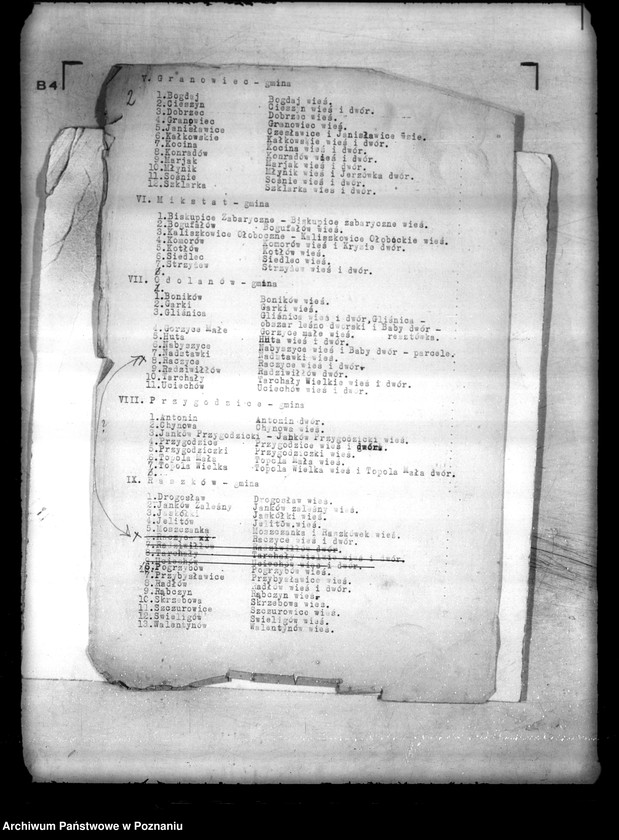 B4
2
V. Granowiec - gmina
1.Bogdaj Bogdaj wieś.
2.Cieszyn Cieszyn wieś i dwór.
3.Dobrzec Dobrzec wieś.
4.Granowiec Granowiec wieś.
5.Janisławice Czesławice i Janisławice wsie.
6.Kałkowskie Kałkowskie wieś i dwór.
7.Kocina Kocina wieś i dwór.
8.Konradów Konradów wieś i dwór.
9.Marjak Marjak wieś i dwór.
10.Młynik Młynik wieś i Jerzówka dwór.
11.Sośnie Sośnie wieś i dwór.
12.Szklarka Szklarka wieś i dwór.
VI. Mikstat - gmina
1.Biskupice Zabaryczne - Biskupice zabaryczne wieś.
2.Bogufałów - Bogufałów wieś.
3.Kaliszkowice Ołoboczne - Kaliszkowice Ołobockie wieś.
4.Komorów Komorów wieś i Kryzie dwór.
5.Kotłów Kotłów wieś.
6.Siedlec Siedlec wieś.
7.Strzyżew Strzyżew wieś i dwór.
VII. Odolanów - gmina
1.Boników Boników wieś.
2.Garki Garki wieś.
3.Gliśnica Gliśnica wieś i dwór, Gliśnica -
obszar leśno dworski i Baby dwór -
resztówka.
4.Gorzyce Małe Gorzyce małe wieś.
5.Huta Huta wieś i dwór.
6.Nabyszyce Nabyszyce wieś i Baby dwór - parcele.
7.Nadstawki Nadstawki wieś.
8.Raczyce Raczyce wieś i dwór.
9.Radziwiłłów Radziwiłłów dwór.
10.Tarchały Tarchały Wielkie wieś i dwór.
11.Uciechów Uciechów wieś i dwór.
VIII. Przygodzice - gmina
?
1.Antonin Antonin dwór.
2.Chynowa Chynowa wieś.
3.Janków Przygodzicki - Janków Przygodzicki wieś.
4.Przygodzice Przygodzice wieś i dwór.
5.Przygodziczki Przygodziczki wieś.
6.Topola Mała Topola Mała wieś.
7.Topola Wielka Topola Wielka wieś i Topola Mała dwór.
IX. Raszków - gmina
1.Drogosław Drogosław wieś.
2.Janków Zaleśny Janków zaleśny wieś.
3.Jaskółki Jaskółki wieś.
4.Jelitów Jelitów wieś.
5.Moszczanka Moszczanka i Raszkówek wieś.
Raczyce Raczyce wieś i dwór.
Radziwiłłów Radziwiłłów dwór.
8.Tarchały Tarchały Wielkie wieś i dwór.
Uciechów Uciechów wieś i dwór.
Pogrzybów Pogrzybów wieś.
7.Przybysławice Przybysławice wieś.
8.Radłów Radłów wieś i dwór.
9.Rąbczyn Rąbczyn wieś.
10.Skrzebowa Skrzebowa wieś.
11.Szczurowice Szczurowice wieś.
12.Świeligów Świeligów wieś.
13.Walentynów Walentynów wieś.
Archiwum Państwowe w Poznaniu